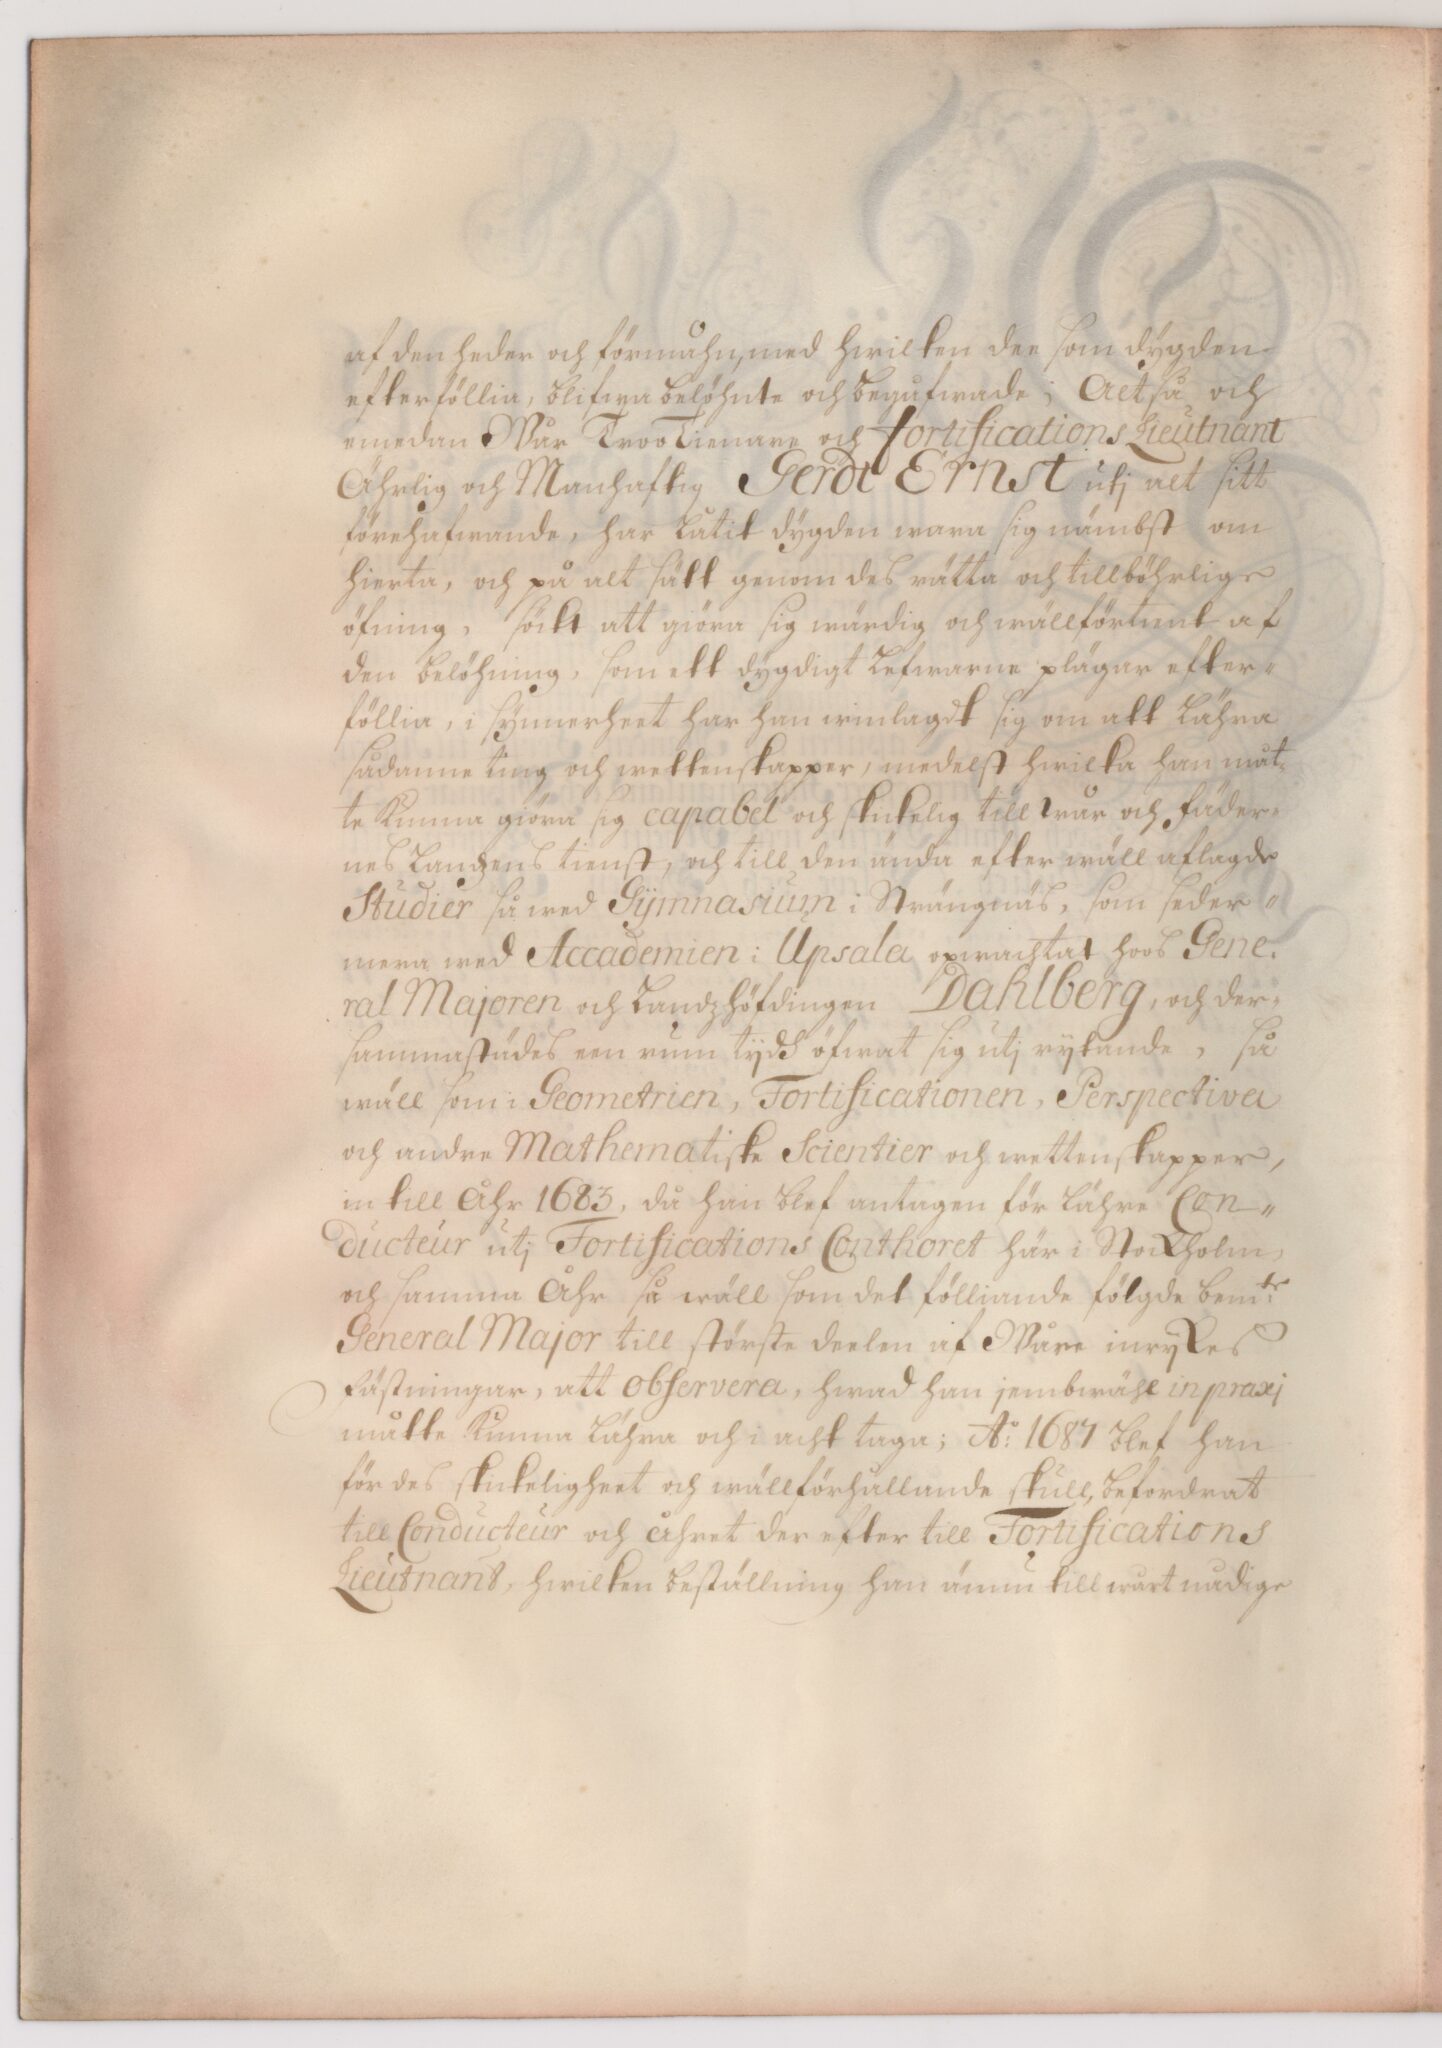 af den heder och förmåhn, med hwilken dee som dygden
efterföllia, blifwa belöhnte och begåfwade; Altså och
emedan Wår Troo Tienare och Fortifications Lieutnant
Ährlig och Manhaftig Gerdt Ernst utj alt sitt
förehafwande, har låtit dygden wara sig nämbst om
hierta, och på alt sätt genom des rätta och tillböhrlige
öfning, sökt att giöra sig wärdig och wällförtient af
den belöhning, som ett dygdigt lefwarne plägar efter-
föllia, i synnerheet har han winlagdt sig om att lähra
sådanne ting och wettenskapper, medelst hwilka han måt-
te kunna giöra sig capabel och skickelig till wår och fäder-
neslandens tienst, och till den ända efter wäll aflagde
Studier så wed Gymnasium i Strängnäs, som seder-
mera wed Accademien i Upsala opwachtat hoos Gene-
ral Majoren och Landzhöfdingen Dahlberg, och der-
sammastädes een rum tydh öfwat sig utj rytande, så
wäll som i Geometrien, Fortificationen, Perspectiva
och andre Mathematiske Scientier och wettenskapper,
in till Åhr 1683, då han blef antagen för Lähre Con-
ducteur utj Fortifications Conthoret här i Stockholm,
och samma Åhr så wäll som det fölliande fölgde bem:te
General Major till största deelen af Wåre inrykes
fästningar, att observera, hwad han jembwähl in praxj
måtte kunna lähra och i acht taga; A:o 1687 blef han
för des skickeligheet och wällförhållande skull, befordrat
till Conducteur och åhret der efter till Fortifications
Lieutnant, hwilken beställning han ännu till wårt nådige